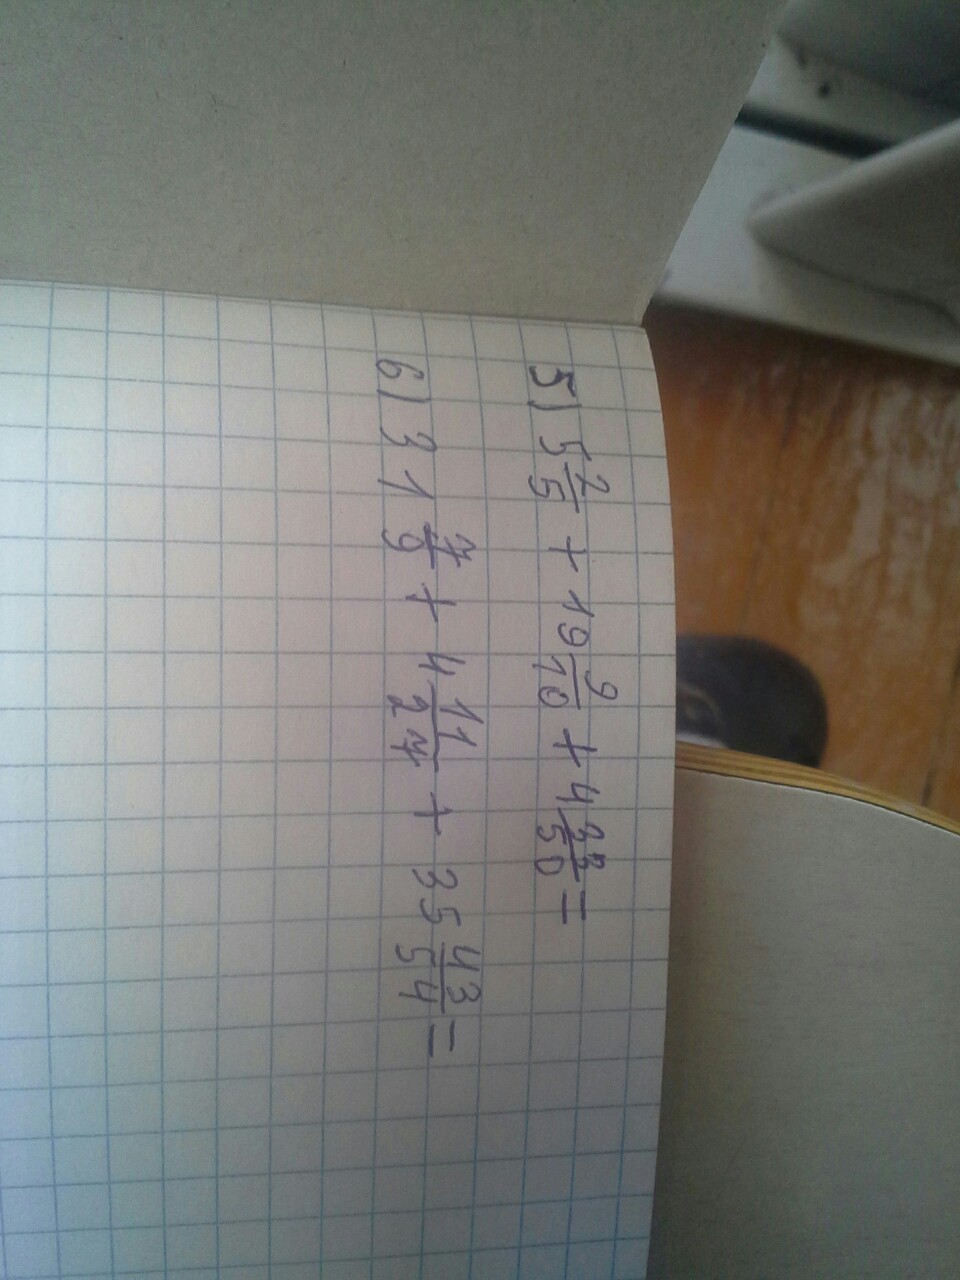 5) 5 2/5 + 19 9/10 + 4 33/50 =
6) 31 7/9 + 4 11/27 + 35 43/54 =